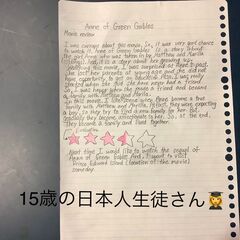 Anne of Green Gables
Movie review
I was curious about this movie. So, it was very good chance
to watch it. Anne of Green Gables is a story about
the girl Anne who was taken by the Matthew and Marilla
and it is a story about her growing up.
Watching this movie, I was surprised at Anne's past.
She lost her parents at young age and she didn't
have opportunity to get an education. Also, I was really
shocked when she said she never had a friend.
So, I was happy when she made a friend and became
a family with Matthew and Marilla.
In this movie, I like scene when Anne became a true
family with Matthew and Marilla. At first, they were expecting
a boy, so they try to find a new family for her. But
gradually they become affectionate to her. So, at the end,
they became a family and lived together.
Evaluation
Next time I would like to watch the sequel of
Anne of Green Gables. And, I want to visit
Prince Edward Island (location of the movie)
someday.
15歳の日本人生徒さん👩‍🎓